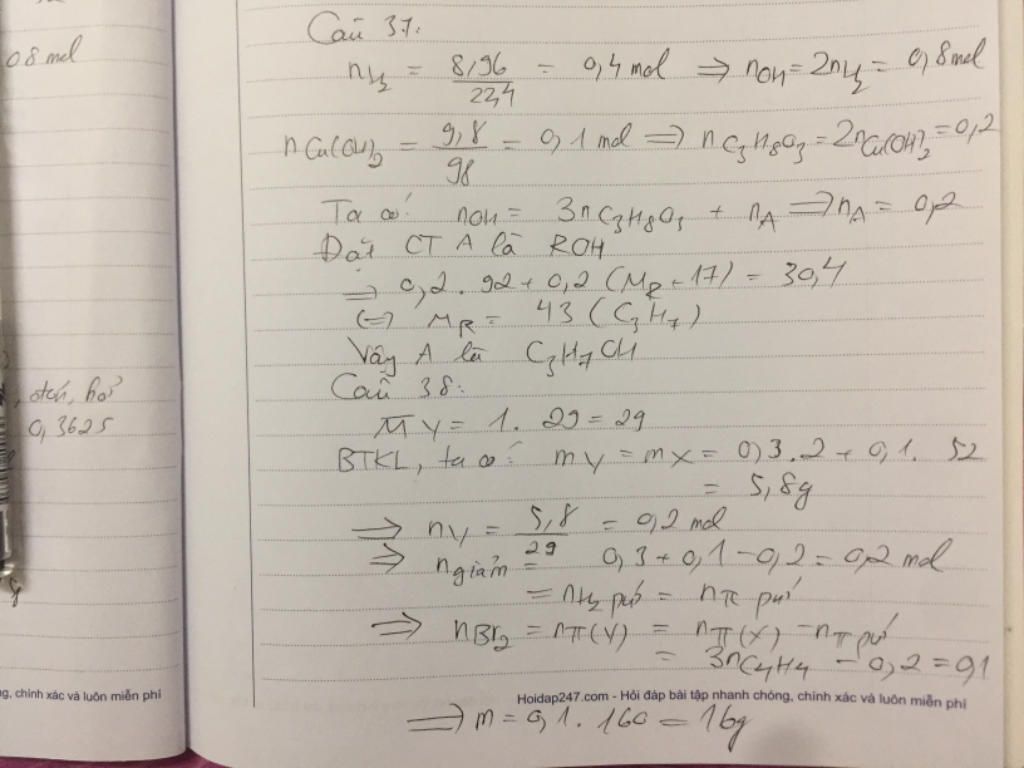 0,8 mol
, otến, hơi
0,3625
ng, chính xác và luôn miễn phí
Câu 37:
nH₂ = 8,96/22,4 = 0,4 mol ⇒ nOH = 2nH₂ = 0,8 mol
nCu(OH)₂ = 9,8/98 = 0,1 mol ⇒ nC₃H₈O₃ = 2nCu(OH)₂ = 0,2
Ta có: nOH = 3nC₃H₈O₃ + nA ⇒ nA = 0,2
Đặt CT A là ROH
⇒ 0,2.92 + 0,2(MR + 17) = 30,4
(⇒) MR = 43 (C₃H₇)
Vậy A là C₃H₇OH
Câu 38:
M̅Y = 1.29 = 29
BTKL, ta có: mY = mX = 0,3.2 + 0,1.52
= 5,8g
⇒ nY = 5,8/29 = 0,2 mol
⇒ ngiảm = 0,3 + 0,1 - 0,2 = 0,2 mol
= nH₂ pứ = nπ pứ
⇒ nBr₂ = nπ(Y) = nπ(X) - nπ pứ
= 3nC₄H₄ - 0,2 = 0,1
Hoidap247.com - Hỏi đáp bài tập nhanh chóng, chính xác và luôn miễn phí
⇒ m = 0,1.160 = 16g